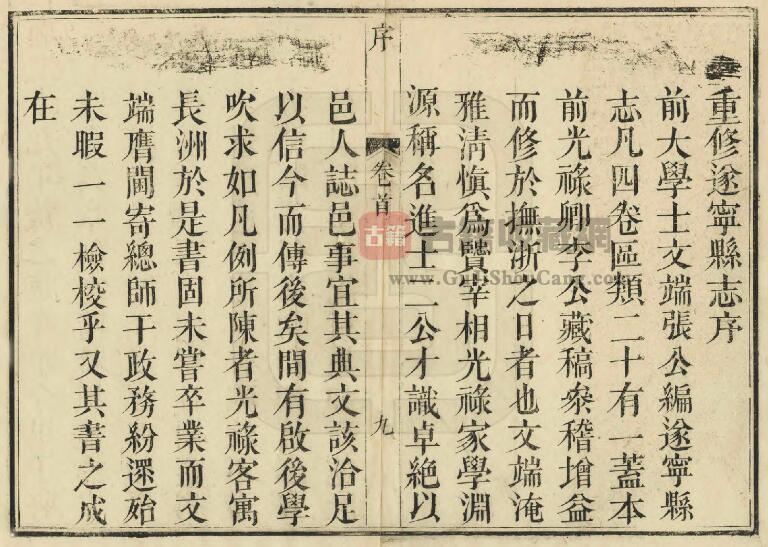 重修遂寧縣志序
前大學士文端張公編遂寧縣
志凡四卷區類二十有一蓋本
前光祿卿李公藏稿叅稽增益
而修於撫浙之日者也文端淹
雅淸愼爲賢宰相光祿家學淵
源稱名進士二公才識卓絕以
序
卷首
九
邑人誌邑事宜其典文該洽足
以信今而傳後矣間有啟後學
吹求如凡例所陳者光祿客寓
長洲於是書固未嘗卒業而文
端膺閫寄總師干政務紛遝殆
未暇一一檢校乎又其書之成
在
古籍
古籍收藏網
www.GujiShouCang.com